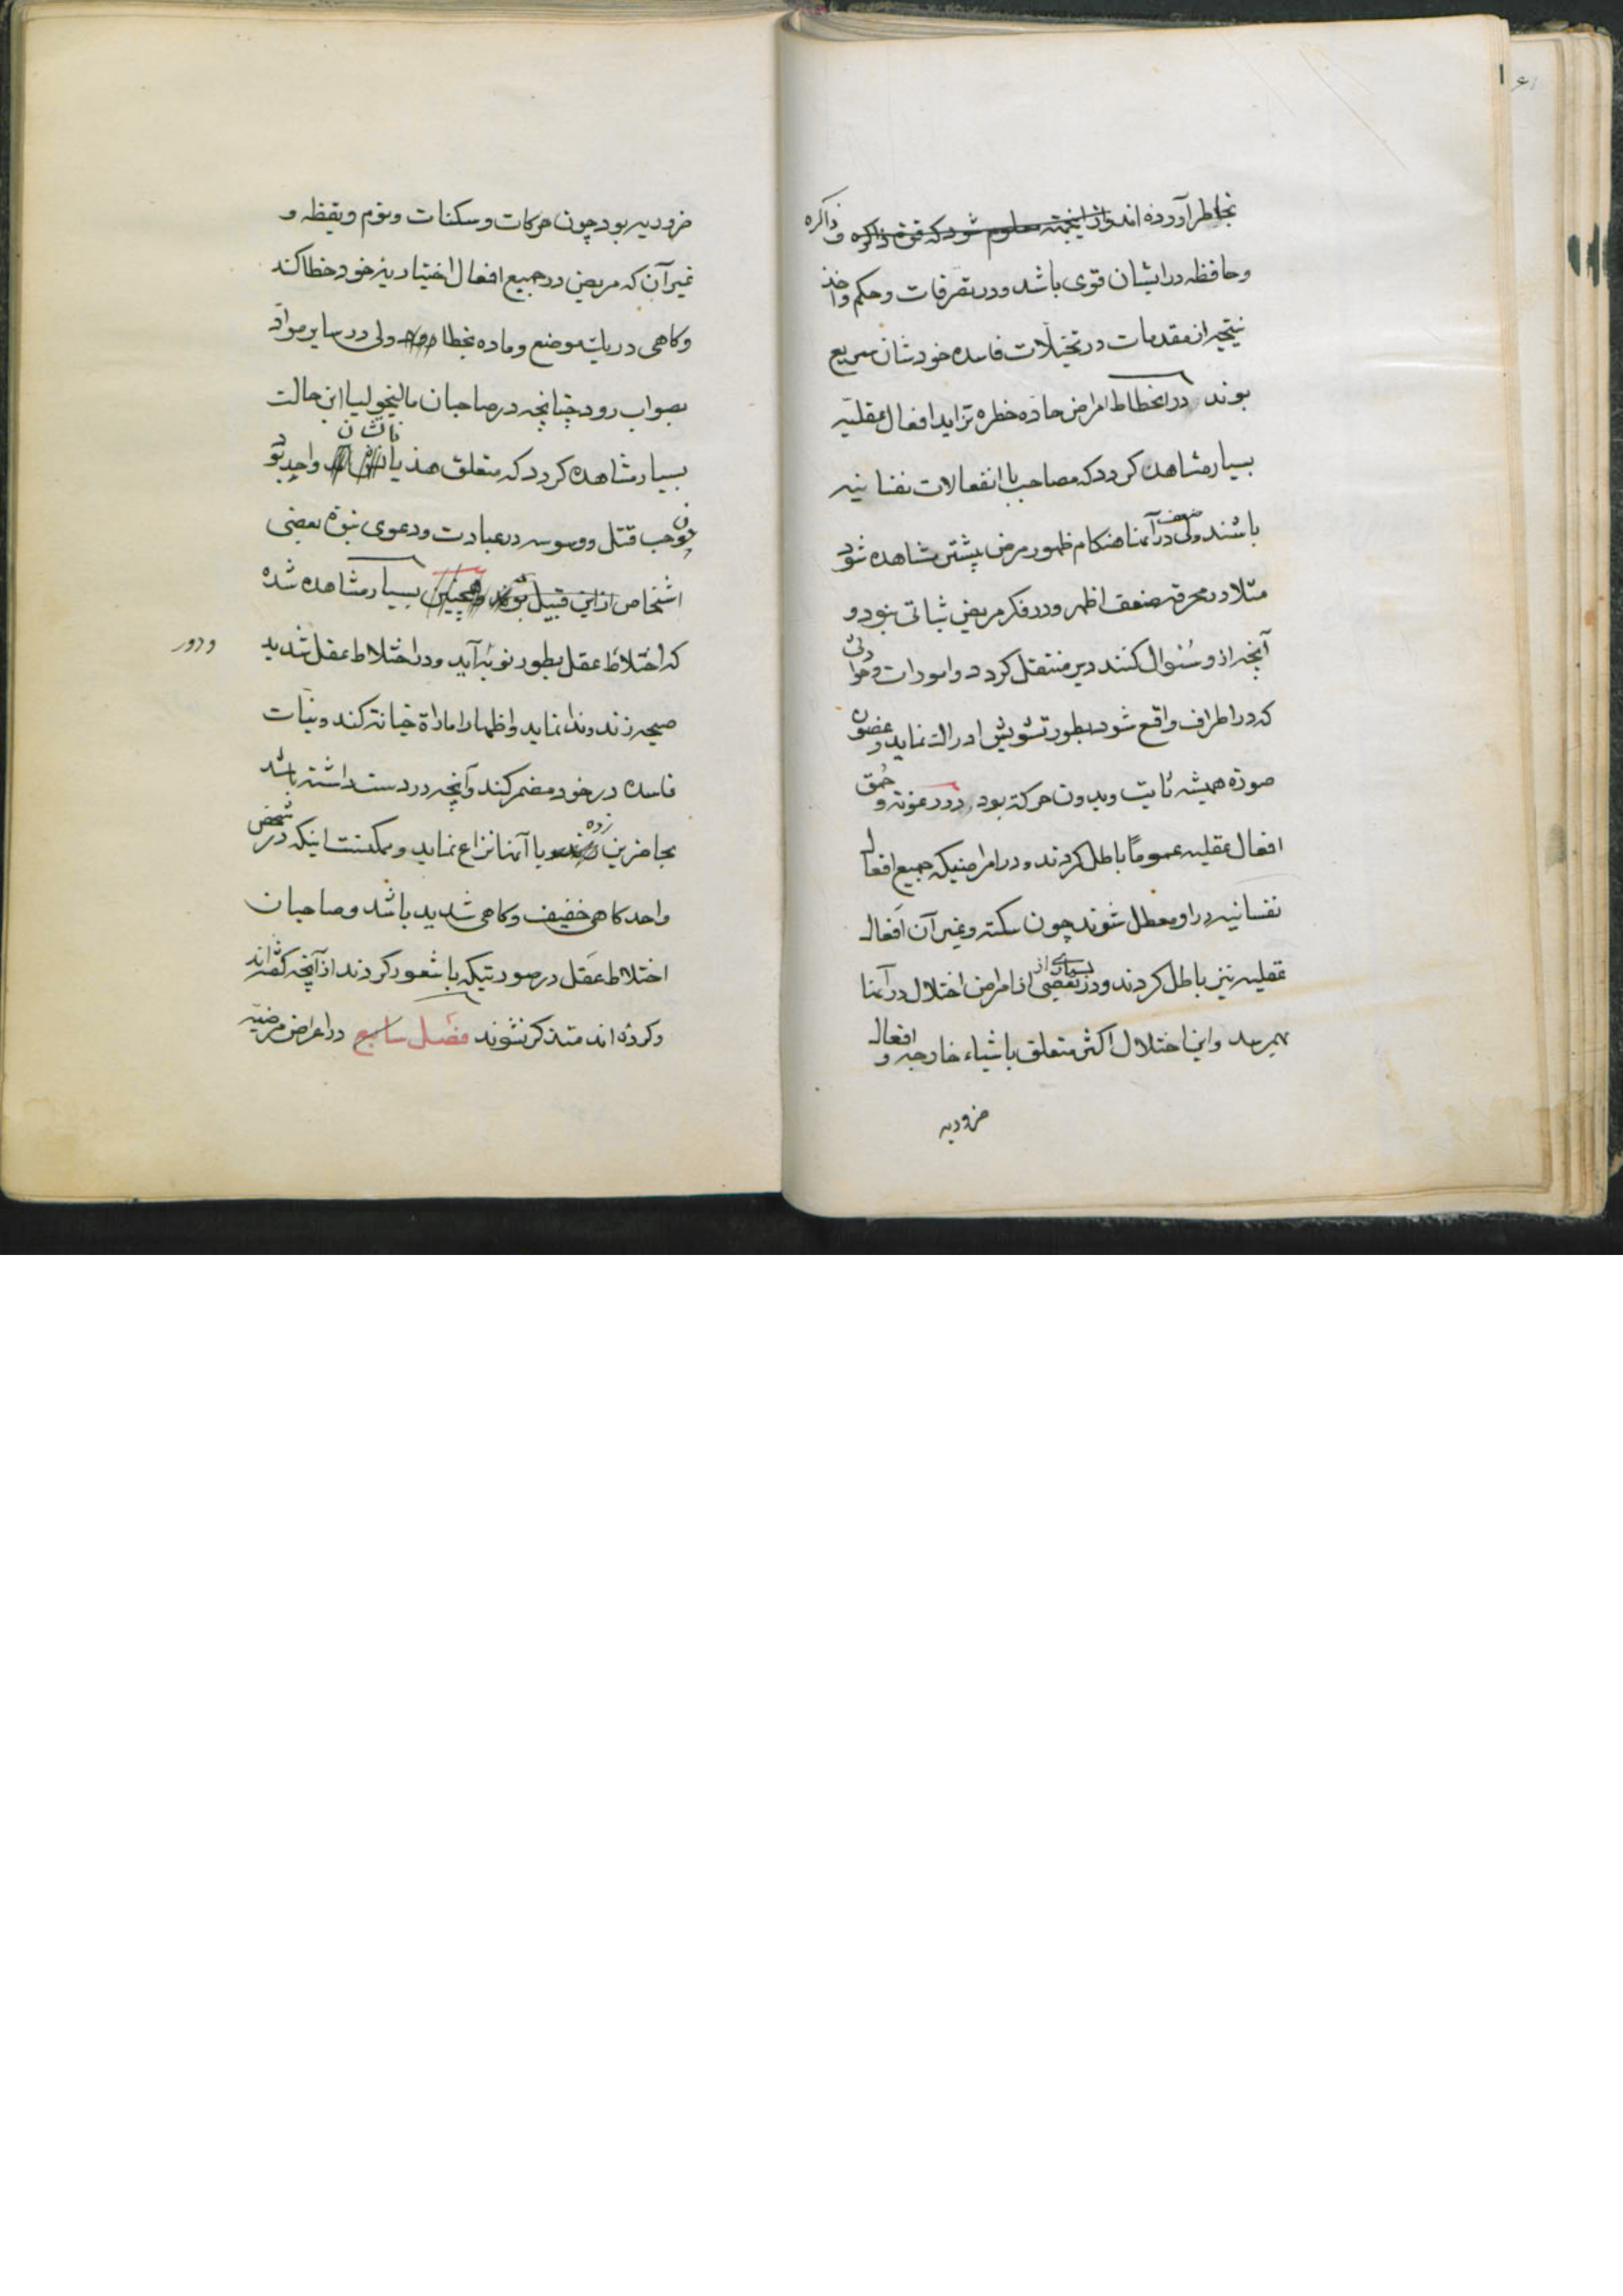 بخاطر آورده اند و از اینجهته معلوم شود که قوهٔ ذاکره و ذاکره
و حافظه در ایشان قوی باشد و در تصرفات و حکم و اخذ
نتیجه از مقدمات در تخیلات فاسده خودشان سریع
بوند در انحطاط امراض حاده خطره تزاید افعال عقلیّه
بسیار مشاهده کردد که مصاحب با انفعالات نفسانیه
باشند ولی ضعف در آنها هنکام ظهور مرض پیشتر مشاهده شود
مثلا در محرقه ضعف اظهر و در فکر مریض ثباتی نبود و
آنچه از و سُئوال کنند دیر منتقل کردد و امورات و حوادثی
که در اطراف واقع شود بطور تشویش ادراک نماید و غضون
صورة همیشه ثابت و بدون حرکة بود در رعونة و حُمق
افعال عقلیه عموماً باطل کردند و در امراضیکه جمیع افعال
نفسانیه در او معطل شوند چون سکته و غیر آن افعال
عقلیه نیز باطل کردند و در بعضی بسیاری از از امراض اختلال در آنها
بهم رسد و این اختلال اکثر متعلق باشیاء خارجه و افعال
ضروریه
۶۱
ضروریه بود چون حرکات و سکنات و نوم و یقظه و
غیر آن که مریض در جمیع افعال اختیاریه خود خطا کند
و کاهی در یک موضع و ماده بخطا رود ولی در سایر موادّ
بصواب رود چنانچه در صاحبان مالیخولیا این حالت
بسیار مشاهده کردد که متعلق هذیاناتشان واحد بود
چون حب قتل و وسوسه در عبادت و دعوی نبوّة بعضی
اشخاص از این قبیل بوند و همچنین بسیار مشاهده شده
که اختلاط عقل بطور نوبه آید و در اختلاط عقل شدید
و دور
صیحه زند و ندا نماید و اظهار امارة خیانة کند و نیّات
فاسده در خود مضمر کند و آنچه در دست داشته باشد
بحاضرین زده و با آنها نزاع نماید و ممکنست اینکه در شخص
واحد کاهی خفیف و کاهی شدید باشد و صاحبان
اختلاط عقل در صورتیکه باشعور کردند از آنچه کفته اند
و کرده اند متذکر نشوند فصل سابع در اعراض مرضیّه